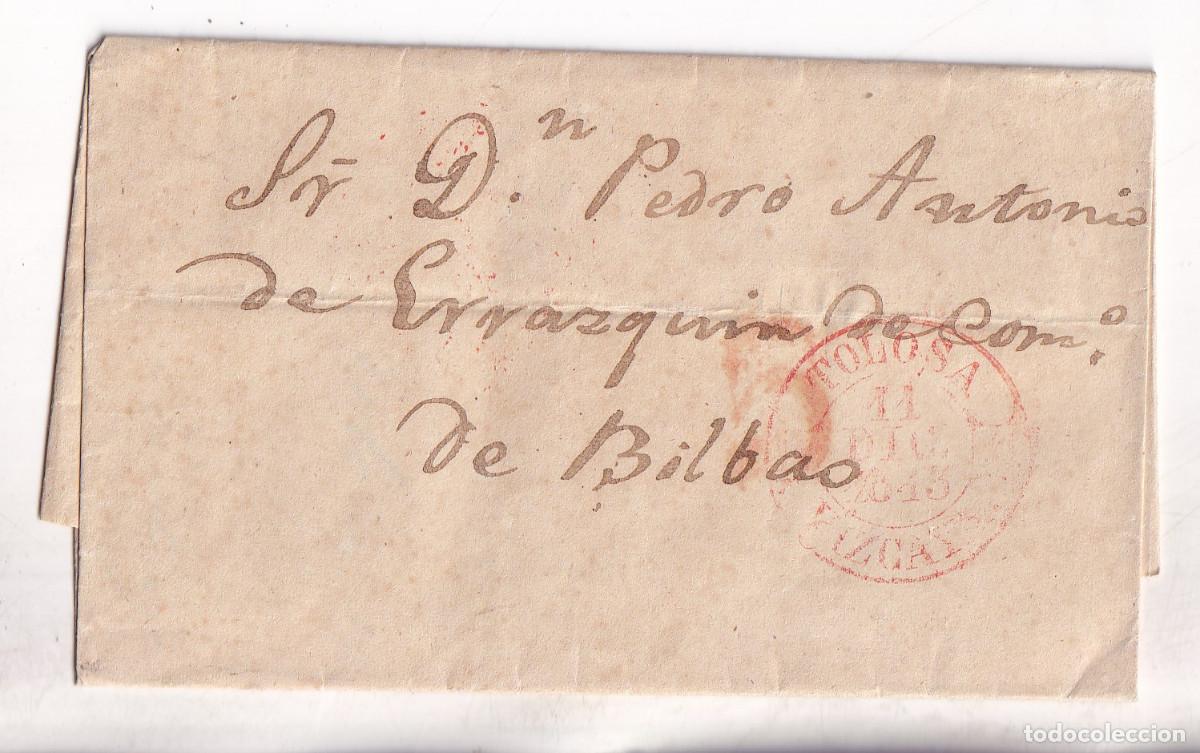 Sr D.n Pedro Antonio
de Errazquin de Com.o
de Bilbao
TOLOSA
11
DIC.
1845
VIZCAYA
todocoleccion